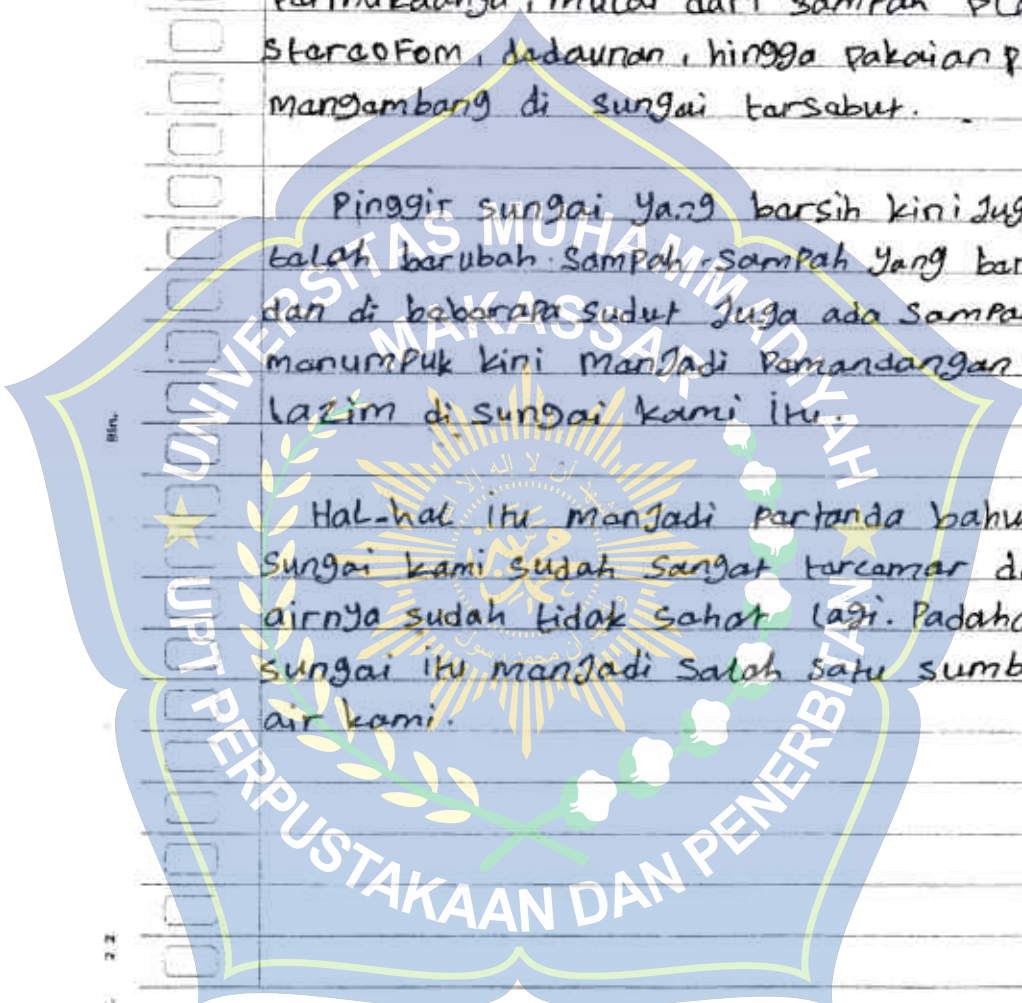 Starcofom, dadaunan, hingga pakaian
mangambang di sungai tarsabut.
Pinggir sungai yang barsih kini Jug
talah barubah. Sampah-sampah yang bar
dan di babarapa sudut Juga ada Sampa
manumpuk kini manJadi Pamandangan
lazim di sungai kami itu.
Hal-hal itu manJadi partanda bahw
Sungai kami sudah Sangat tarcamar d
airnya sudah tidak Sahat lagi. Padaha
sungai itu manJadi Salah satu sumb
air kami.
Bln.
UNIVERSITAS MUHAMMADIYAH
MAKASSAR
UPT PERPUSTAKAAN DAN PENERBITAN